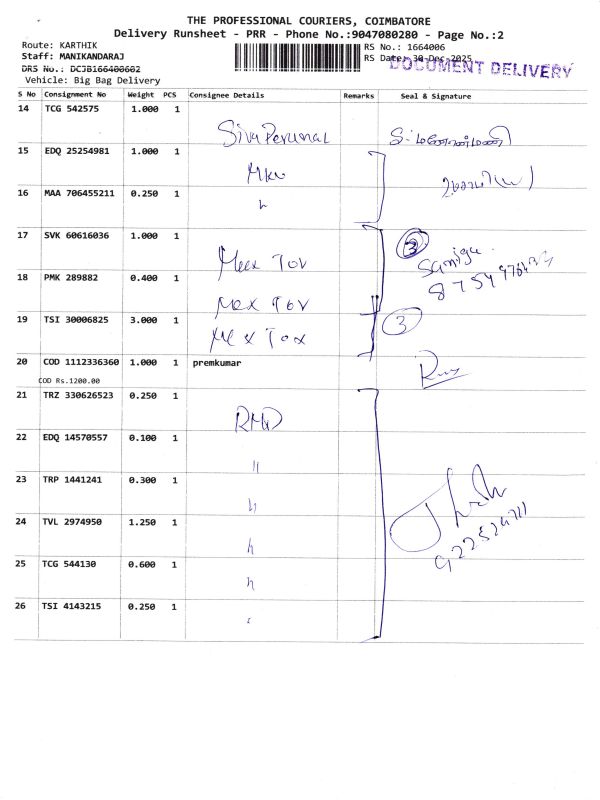 THE PROFESSIONAL COURIERS, COIMBATORE
Delivery Runsheet - PRR - Phone No.:9047080280 - Page No.:2
Route: KARTHIK
RS No.: 1664006
Staff: MANIKANDARAJ
RS Date: 30-Dec-2025
DOCUMENT DELIVERY
DRS No.: DCJB166400602
Vehicle: Big Bag Delivery
S No Consignment No Weight PCS Consignee Details Remarks Seal & Signature
14 TCG 542575 1.000 1
Siva Perumal
15 EDQ 25254981 1.000 1
16 MAA 706455211 0.250 1
17 SVK 60616036 1.000 1
3
18 PMK 289882 0.400 1
Mex Tov
19 TSI 30006825 3.000 1
3
Mex Tox
20 COD 1112336360 1.000 1 premkumar
COD Rs.1200.00
21 TRZ 330626523 0.250 1
RMD
22 EDQ 14570557 0.100 1
"
23 TRP 1441241 0.300 1
24 TVL 2974950 1.250 1
25 TCG 544130 0.600 1
26 TSI 4143215 0.250 1